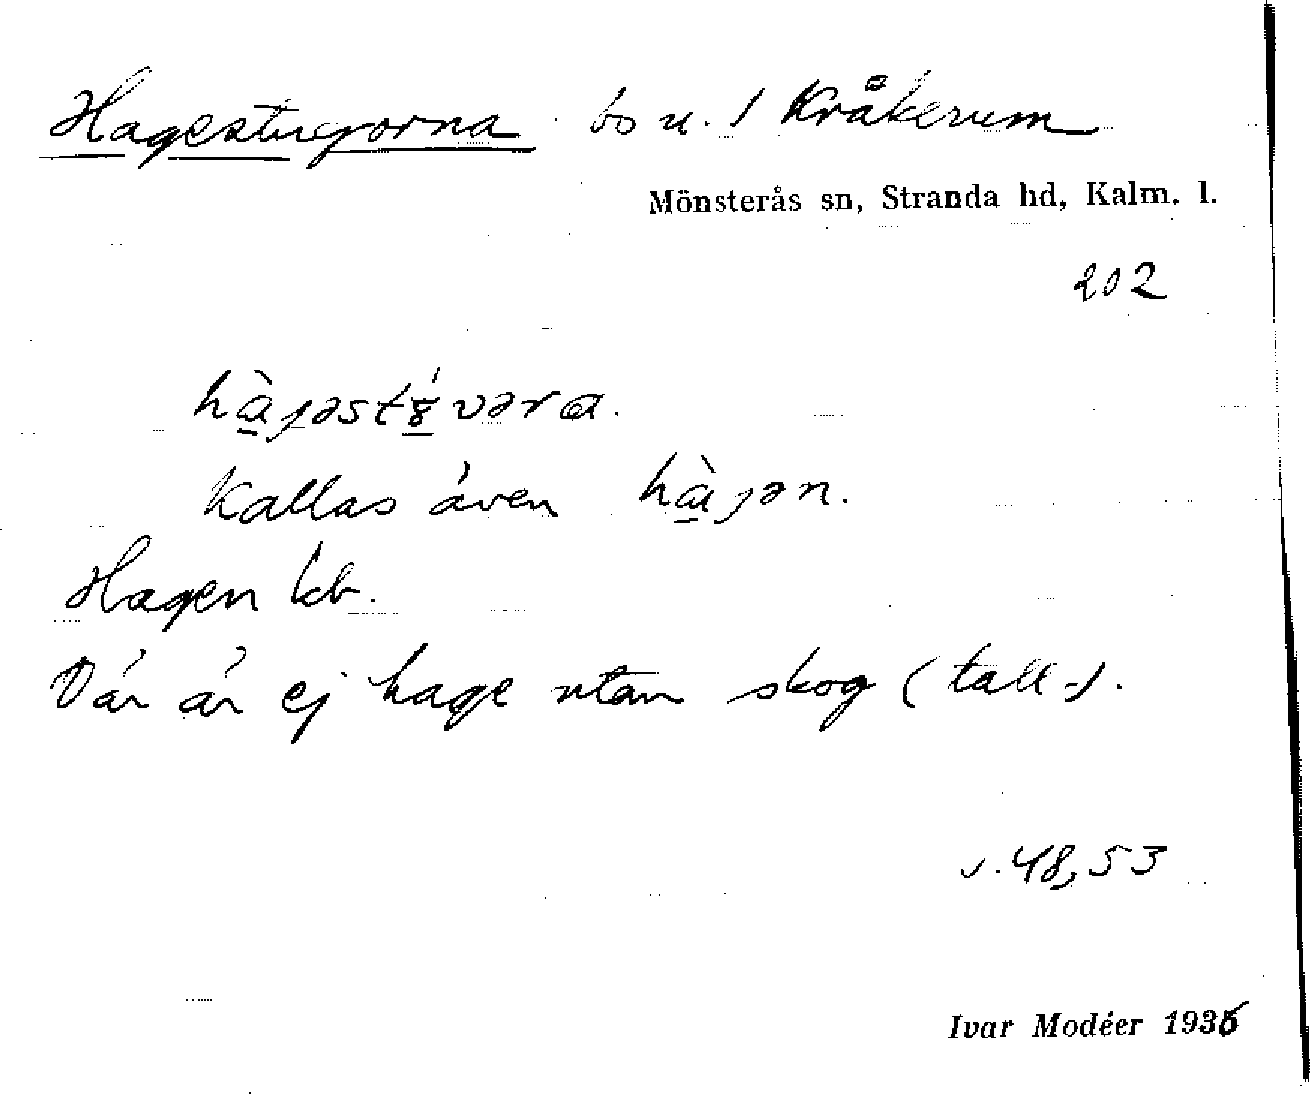 Hagestugorna bo u. 1 Kråkerum
Mönsterås sn, Stranda hd, Kalm. l.
202
Kallas även
Hagen kb.
Där är ej hage utan skog (tall-).
s. 48, 53
Ivar Modéer 1936